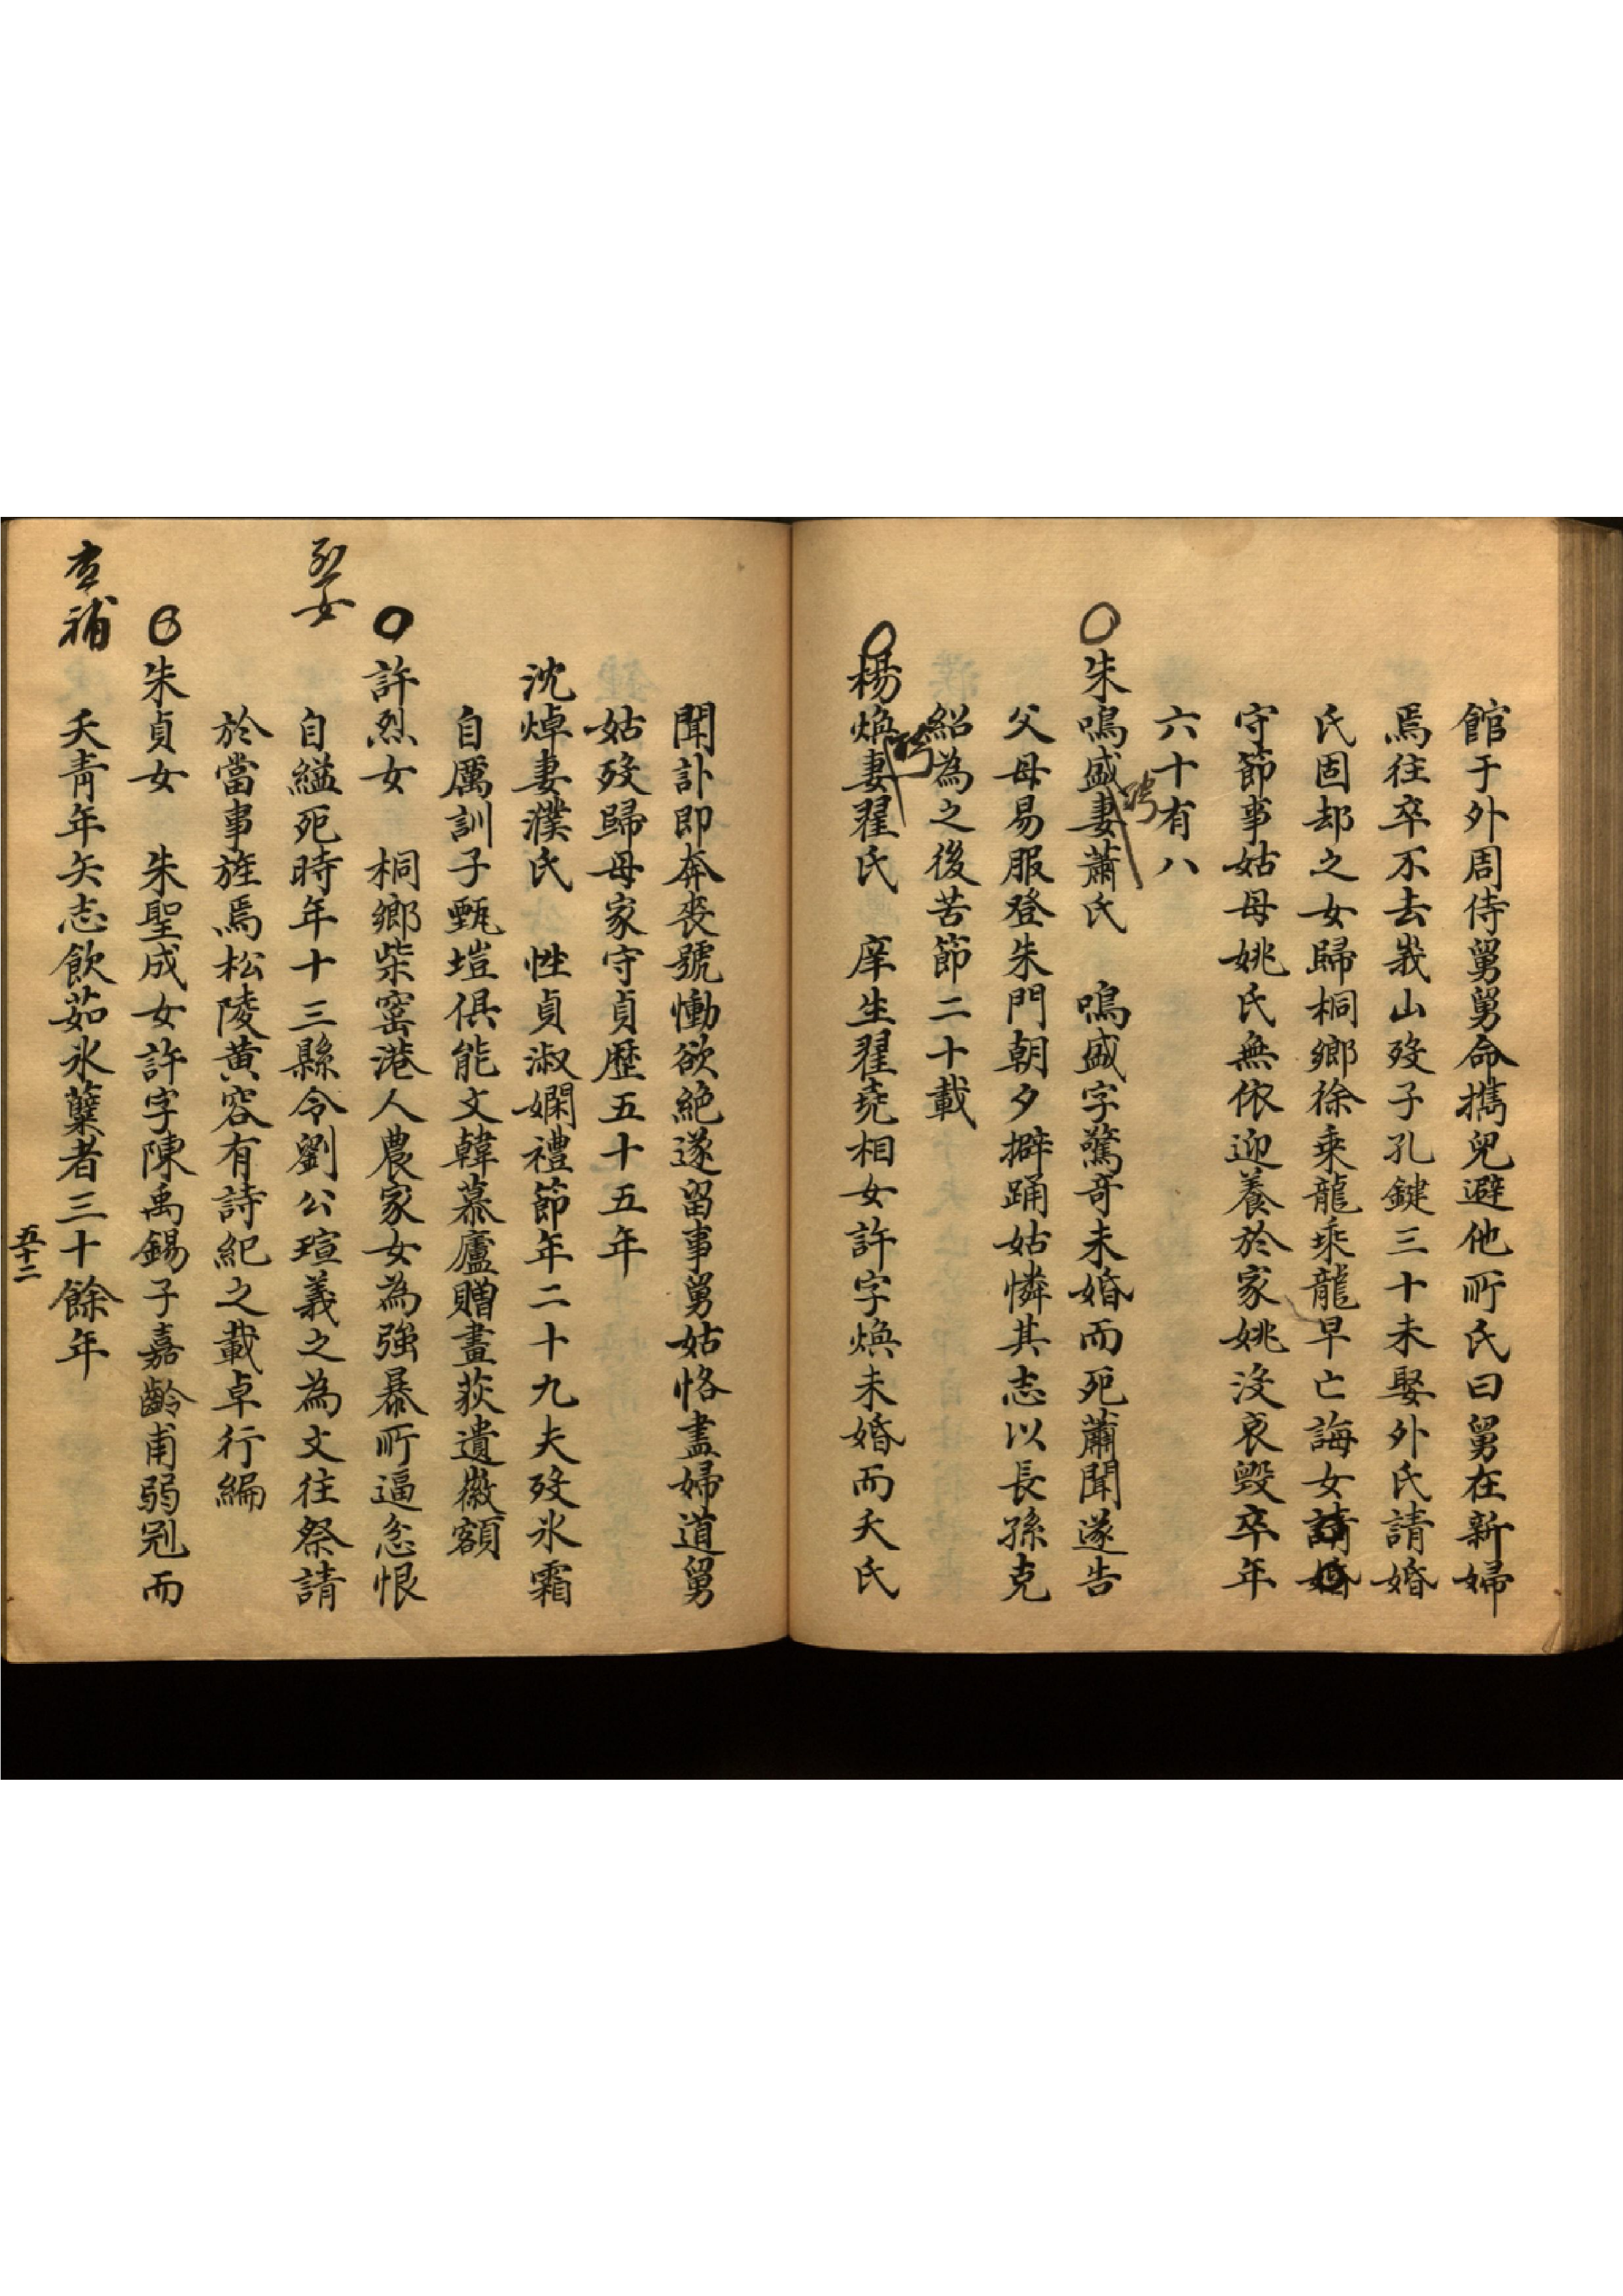 館于外周侍舅舅命攜兒避他所氏曰舅在新婦
焉往卒不去峩山歿子孔鍵三十未娶外氏請婚
氏固却之女歸桐鄉徐乘龍乘龍早亡誨女請婚
守節事姑母姚氏無依迎養於家姚沒哀毀卒年
六十有八
朱鳴盛妻蕭氏 鳴盛字驚奇未婚而死蕭聞遂告
聘
父母易服登朱門朝夕擗踊姑憐其志以長孫克
紹為之後苦節二十載
楊煥妻翟氏 庠生翟堯相女許字煥未婚而夭氏
聘
聞訃即奔喪號慟欲絕遂留事舅姑恪盡婦道舅
姑歿歸母家守貞歷五十五年
沈焯妻濮氏 性貞淑嫻禮節年二十九夫歿氷霜
自厲訓子甄塏俱能文韓慕廬贈畫荻遺徽額
許烈女 桐鄉柴窑港人農家女為強暴所逼忿恨
烈女
自縊死時年十三縣令劉公瑄義之為文往祭請
於當事旌焉松陵黃容有詩紀之載卓行編
朱貞女 朱聖成女許字陳禹錫子嘉齡甫弱冠而
夭青年矢志飲茹氷蘗者三十餘年
查補
五十二